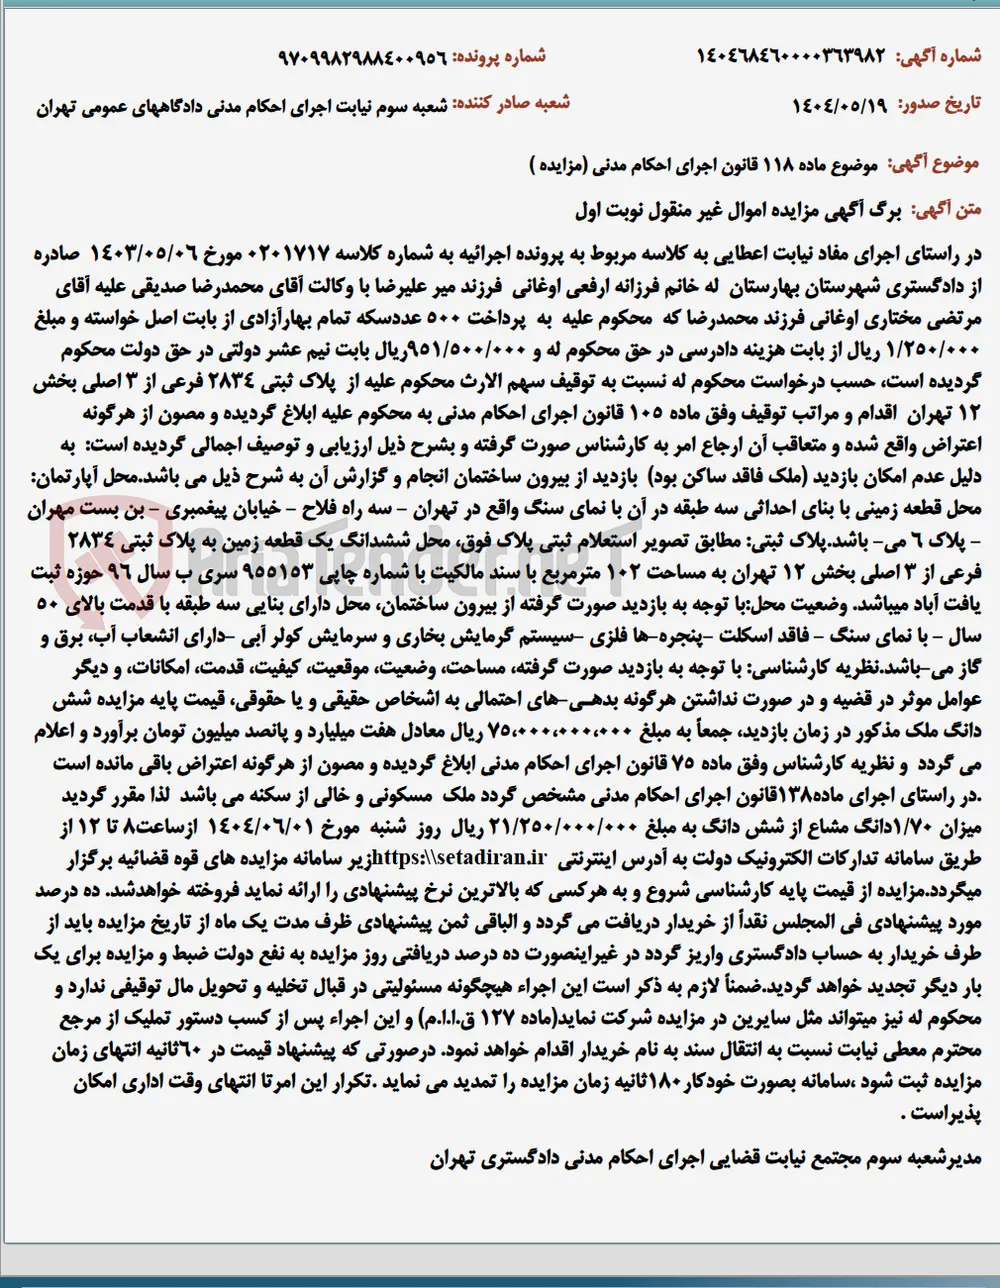 شماره آگهی: ۱۴۰۴۶۸۴۶۰۰۰۰۳۶۳۹۸۲ شماره پرونده: ۹۷۰۹۹۸۲۹۸۸۴۰۰۹۵۶
تاریخ صدور: ۱۴۰۴/۰۵/۱۹ شعبه صادر کننده: شعبه سوم نیابت اجرای احکام مدنی دادگاههای عمومی تهران
موضوع آگهی: موضوع ماده ۱۱۸ قانون اجرای احکام مدنی (مزایده )
متن آگهی: برگ آگهی مزایده اموال غیر منقول نوبت اول
در راستای اجرای مفاد نیابت اعطایی به کلاسه مربوط به پرونده اجرائیه به شماره کلاسه ۰۲۰۱۷۱۷ مورخ ۱۴۰۳/۰۵/۰۶ صادره
از دادگستری شهرستان بهارستان له خانم فرزانه ارفعی اوغانی فرزند میر علیرضا با وکالت آقای محمدرضا صدیقی علیه آقای
مرتضی مختاری اوغانی فرزند محمدرضا که محکوم علیه به پرداخت ۵۰۰ عددسکه تمام بهارآزادی از بابت اصل خواسته و مبلغ
۱/۲۵۰/۰۰۰ ریال از بابت هزینه دادرسی در حق محکوم له و ۹۵۱/۵۰۰/۰۰۰ریال بابت نیم عشر دولتی در حق دولت محکوم
گردیده است، حسب درخواست محکوم له نسبت به توقیف سهم الارث محکوم علیه از پلاک ثبتی ۲۸۳۴ فرعی از ۳ اصلی بخش
۱۲ تهران اقدام و مراتب توقیف وفق ماده ۱۰۵ قانون اجرای احکام مدنی به محکوم علیه ابلاغ گردیده و مصون از هرگونه
اعتراض واقع شده و متعاقب آن ارجاع امر به کارشناس صورت گرفته و بشرح ذیل ارزیابی و توصیف اجمالی گردیده است: به
دلیل عدم امکان بازدید (ملک فاقد ساکن بود) بازدید از بیرون ساختمان انجام و گزارش آن به شرح ذیل می باشد.محل آپارتمان:
محل قطعه زمینی با بنای احداثی سه طبقه در آن با نمای سنگ واقع در تهران – سه راه فلاح – خیابان پیغمبری – بن بست مهران
– پلاک ۶ می– باشد.پلاک ثبتی: مطابق تصویر استعلام ثبتی پلاک فوق، محل ششدانگ یک قطعه زمین به پلاک ثبتی ۲۸۳۴
فرعی از ۳ اصلی بخش ۱۲ تهران به مساحت ۱۰۲ مترمربع با سند مالکیت با شماره چاپی ۹۵۵۱۵۳ سری ب سال ۹۶ حوزه ثبت
یافت آباد میباشد. وضعیت محل:با توجه به بازدید صورت گرفته از بیرون ساختمان، محل دارای بنایی سه طبقه با قدمت بالای ۵۰
سال – با نمای سنگ – فاقد اسکلت –پنجره–ها فلزی –سیستم گرمایش بخاری و سرمایش کولر آبی –دارای انشعاب آب، برق و
گاز می–باشد.نظریه کارشناسی: با توجه به بازدید صورت گرفته، مساحت، وضعیت، موقعیت، کیفیت، قدمت، امکانات، و دیگر
عوامل موثر در قضیه و در صورت نداشتن هرگونه بدهـی–های احتمالی به اشخاص حقیقی و یا حقوقی، قیمت پایه مزایده شش
دانگ ملک مذکور در زمان بازدید، جمعاً به مبلغ ۷۵،۰۰۰،۰۰۰،۰۰۰ ریال معادل هفت میلیارد و پانصد میلیون تومان برآورد و اعلام
می گردد و نظریه کارشناس وفق ماده ۷۵ قانون اجرای احکام مدنی ابلاغ گردیده و مصون از هرگونه اعتراض باقی مانده است
.در راستای اجرای ماده۱۳۸قانون اجرای احکام مدنی مشخص گردد ملک مسکونی و خالی از سکنه می باشد لذا مقرر گردید
میزان ۱/۷۰دانگ مشاع از شش دانگ به مبلغ ۲۱/۲۵۰/۰۰۰/۰۰۰ ریال روز شنبه مورخ ۱۴۰۴/۰۶/۰۱ ازساعت۸ تا ۱۲ از
طریق سامانه تدارکات الکترونیک دولت به آدرس اینترنتی https:\\setadiran.irزیر سامانه مزایده های قوه قضائیه برگزار
میگردد.مزایده از قیمت پایه کارشناسی شروع و به هرکسی که بالاترین نرخ پیشنهادی را ارائه نماید فروخته خواهدشد. ده درصد
مورد پیشنهادی فی المجلس نقداً از خریدار دریافت می گردد و الباقی ثمن پیشنهادی ظرف مدت یک ماه از تاریخ مزایده باید از
طرف خریدار به حساب دادگستری واریز گردد در غیراینصورت ده درصد دریافتی روز مزایده به نفع دولت ضبط و مزایده برای یک
بار دیگر تجدید خواهد گردید.ضمناً لازم به ذکر است این اجراء هیچگونه مسئولیتی در قبال تخلیه و تحویل مال توقیفی ندارد و
محکوم له نیز میتواند مثل سایرین در مزایده شرکت نماید(ماده ۱۲۷ ق.ا.ا.م) و این اجراء پس از کسب دستور تملیک از مرجع
محترم معطی نیابت نسبت به انتقال سند به نام خریدار اقدام خواهد نمود. درصورتی که پیشنهاد قیمت در ۶۰ثانیه انتهای زمان
مزایده ثبت شود ،سامانه بصورت خودکار۱۸۰ثانیه زمان مزایده را تمدید می نماید .تکرار این امرتا انتهای وقت اداری امکان
پذیراست .
مدیرشعبه سوم مجتمع نیابت قضایی اجرای احکام مدنی دادگستری تهران
AriaTender.neT